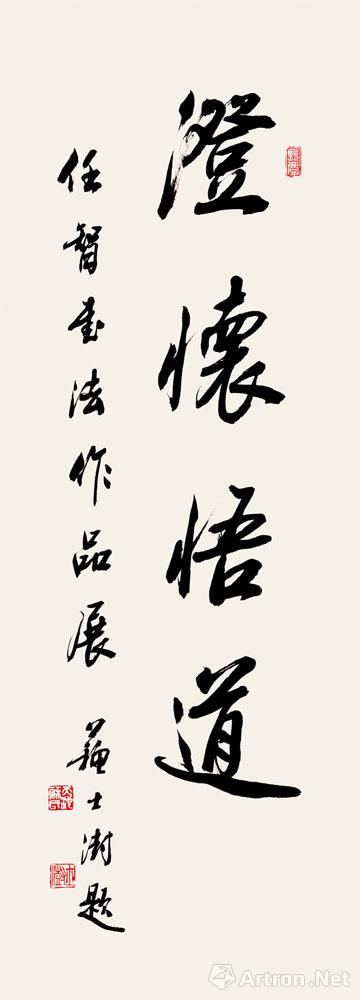 澄懷悟道
任智書法作品展 蘇士澍題
Artron.Net